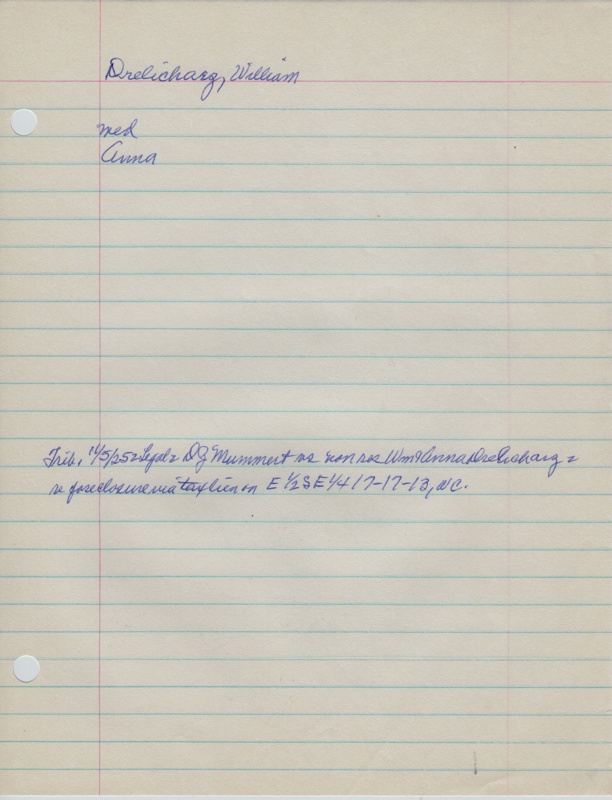 Drelicharg, William
med
Anna
Trib, 11/5/25 = Legal = D J Mummert vs non res Wm & Anna Drelicharg =
= foreclosure via tax lien on E 1/2 SE 1/4 17-17-13, NC.